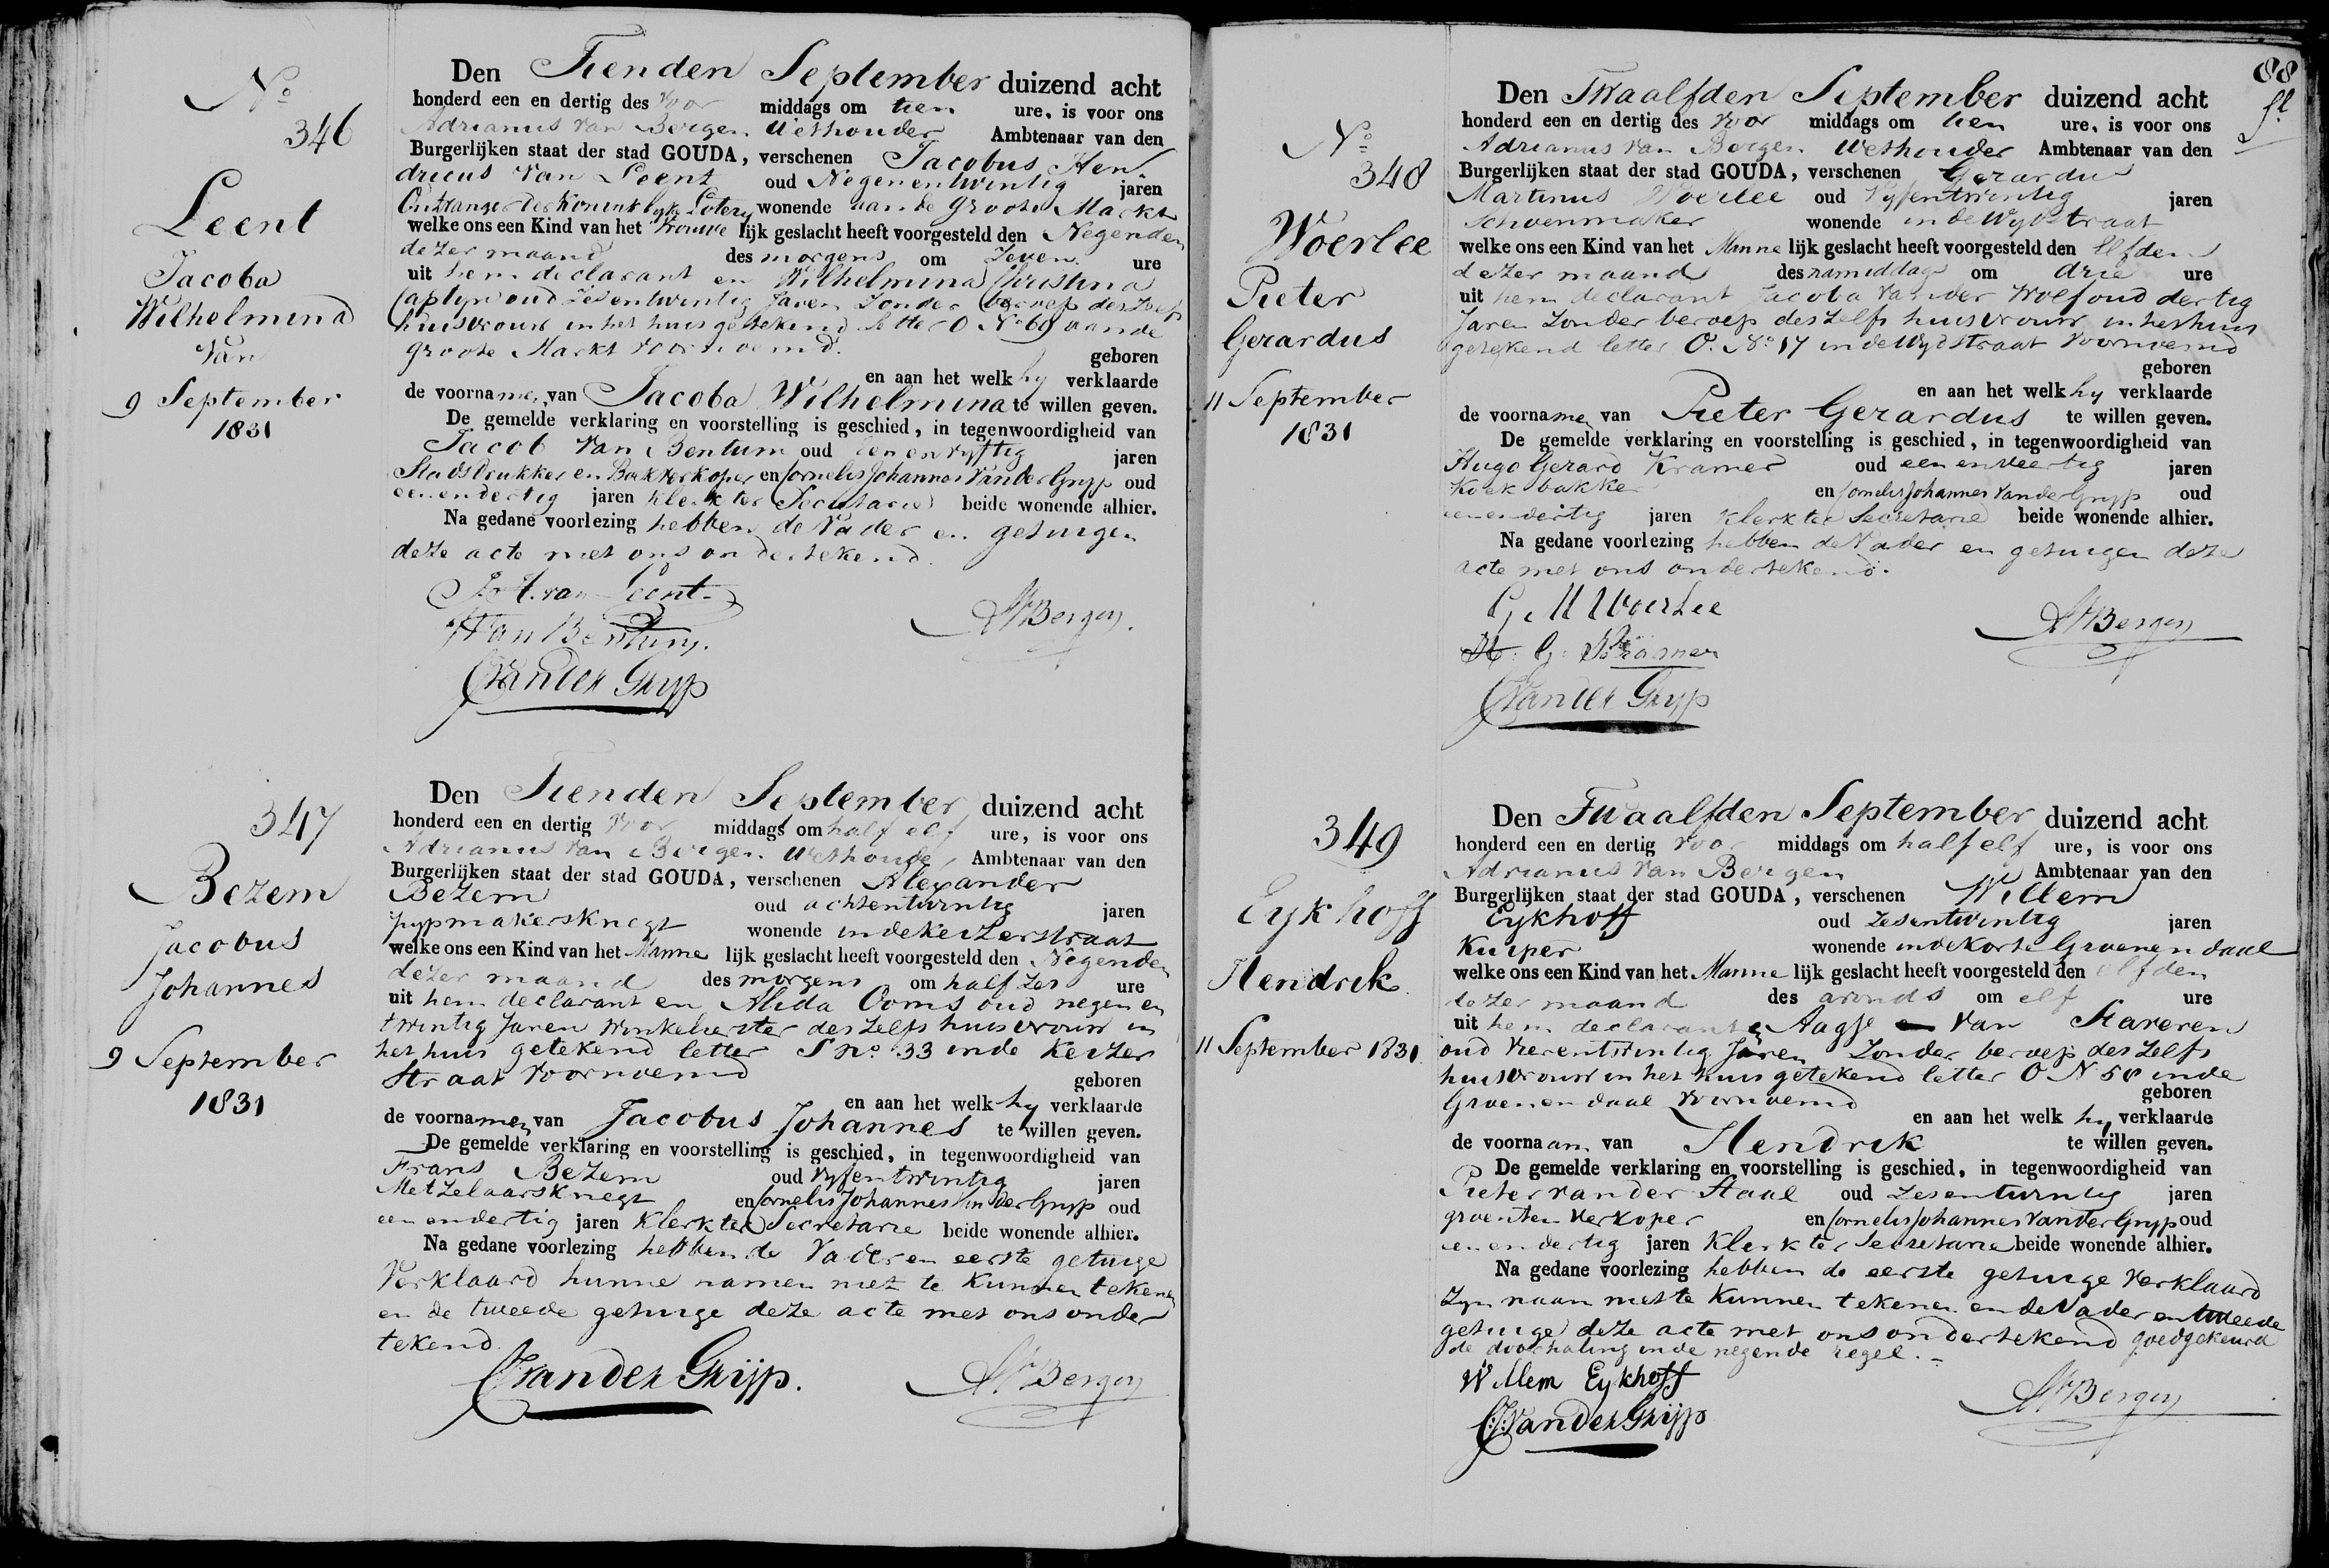 No
346
Leent
Jacoba
Wilhelmina
van
9 September
1831
Den Tienden September duizend acht
honderd een en dertig des voor middags om tien ure, is voor ons
Adrianus van Bergen Wethouder Ambtenaar van den
Burgerlijken staat der stad GOUDA, verschenen Jacobus Hen-
dricus van Leent oud Negenentwintig jaren
Ontvanger der Koninklyke Lotery wonende aan de Groote Markt
welke ons een Kind van het Vrouwe lijk geslacht heeft voorgesteld den Negenden
dezer maand des morgens om Zeven ure
uit hem declarant en Wilhelmina Christina
Captyn oud zesentwintig Jaren Zonder beroep deszelfs
huisvrouw in het huis getekend letter O No 69 aan de
Groote Markt voornoemd. geboren
en aan het welk hy verklaarde
de voornamen van Jacoba Wilhelmina te willen geven.
De gemelde verklaring en voorstelling is geschied, in tegenwoordigheid van
Jacob van Bentum oud een en vyftig jaren
Stadsdrukker en Boekverkoper en Cornelis Johannes Van der Gryp oud
een en dertig jaren Klerk ter Secretarie beide wonende alhier.
Na gedane voorlezing hebben de Vader en getuigen
deze acte met ons ondertekend.
J. H. van Leent
J Van Bentum.
CJ Van der Gryp
AV Bergen
347
Bezem
Jacobus
Johannes
9 September
1831
Den Tienden September duizend acht
honderd een en dertig voor middags om half elf ure, is voor ons
Adrianus van Bergen Wethouder Ambtenaar van den
Burgerlijken staat der stad GOUDA, verschenen Alexander
Bezem oud achtentwintig jaren
pypmakersknegt wonende in de Keizerstraat
welke ons een Kind van het Manne lijk geslacht heeft voorgesteld den Negenden
dezer maand des morgens om half zes ure
uit hem declarant en Alida Ooms oud negen en
twintig Jaren Winkelierster deszelfs huisvrouw in
het huis getekend letter P no. 33 in de Keizer
Straat voornoemd geboren
en aan het welk hy verklaarde
de voornamen van Jacobus Johannes te willen geven.
De gemelde verklaring en voorstelling is geschied, in tegenwoordigheid van
Frans Bezem oud vyfentwintig jaren
Metzelaarsknegt en Cornelis Johannes Van der Gryp oud
een en dertig jaren Klerk ter Secretarie beide wonende alhier.
Na gedane voorlezing hebben de Vader en eerste getuige
Verklaard hunne namen niet te kunnen tekenen
en de tweede getuige deze acte met ons onder
tekend.
CJ Van der Gryp.
AV Bergen
88
No
348
Woerlee
Pieter
Gerardus
11 September
1831
Den Twaalfden September duizend acht
honderd een en dertig des voor middags om tien ure, is voor ons
Adrianus van Bergen Wethouder Ambtenaar van den
Burgerlijken staat der stad GOUDA, verschenen Gerardus
Martinus Woerlee oud Vyfentwintig jaren
Schoenmaker wonende in de Wydstraat
welke ons een Kind van het Manne lijk geslacht heeft voorgesteld den Elfden
dezer maand des namiddags om drie ure
uit hem declarant Jacoba van der Wolf oud dertig
Jaren Zonder beroep deszelfs huisvrouw in het huis
getekend letter O. No. 17 in de Wydstraat voornoemd
geboren
en aan het welk hy verklaarde
de voornamen van Pieter Gerardus te willen geven.
De gemelde verklaring en voorstelling is geschied, in tegenwoordigheid van
Hugo Gerard Kramer oud een en veertig jaren
Koekbakker en Cornelis Johannes Van der Gryp oud
een en dertig jaren Klerk ter Secretarie beide wonende alhier.
Na gedane voorlezing hebben de Vader en getuigen deze
acte met ons ondertekend.
G. M Woerlee
H: G: Kramer
CJ Van der Gryp
AV Bergen
349
Eykhoff
Hendrik
11 September 1831
Den Twaalfden September duizend acht
honderd een en dertig voor middags om half elf ure, is voor ons
Adrianus van Bergen Ambtenaar van den
Burgerlijken staat der stad GOUDA, verschenen Willem
Eykhoff oud zesentwintig jaren
Kuiper wonende in de Korte Groenendaal
welke ons een Kind van het Manne lijk geslacht heeft voorgesteld den elfden
dezer maand des avonds om elf ure
uit hem declarant & Aagje en van Staveren
oud vierentwintig Jaren Zonder beroep deszelfs
huisvrouw in het huis getekend letter O N 58 in de
Groenendaal voornoemd geboren
en aan het welk hy verklaarde
de voornaam van Hendrik te willen geven.
De gemelde verklaring en voorstelling is geschied, in tegenwoordigheid van
Pieter van der Staal oud zesentwintig jaren
groenten verkoper en Cornelis Johannes Van der Gryp oud
een en dertig jaren Klerk ter Secretarie beide wonende alhier.
Na gedane voorlezing hebben de eerste getuige verklaard
zyn naam niet te kunnen tekenen en de Vader en tweede
getuige deze acte met ons ondertekend goedgekeurd
de doorhaling in de negende regel.
Willem Eykhoff
C:J: Van der Gryp
AV Bergen